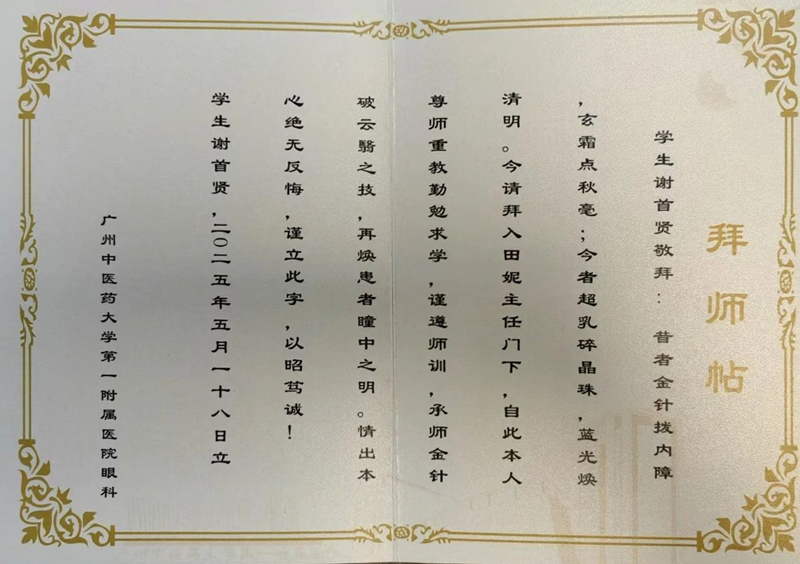 拜师帖
学生谢首贤敬拜：昔者金针拨内障
，玄霜点秋毫；今者超乳碎晶珠，蓝光焕
清明。今请拜入田妮主任门下，自此本人
尊师重教勤勉求学，谨遵师训，承师金针
破云翳之技，再焕患者瞳中之明。情出本
心绝无反悔，谨立此字，以昭笃诚！
学生谢首贤，二〇二五年五月一十八日立
广州中医药大学第一附属医院眼科